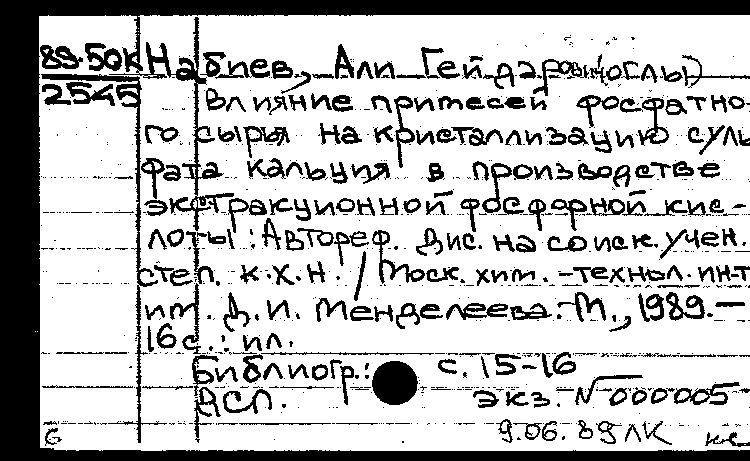 89-50К Набиев, Али Гейдар(ович)(оглы)
2545 Влияние примесей фосфатно-
го сырья на кристаллизацию суль
фата кальция в производстве
экстракционной фосфорной кис-
лоты : Автореф. Дис. на соиск. учен.
степ. к.х.н. / Моск. хим.-технол. ин-т
им. Д.И. Менделеева.-М., 1989.—
16 с. : ил.
Библиогр.: с. 15-16
ДСП. экз. № 000005
9.06.89 ЛК
6